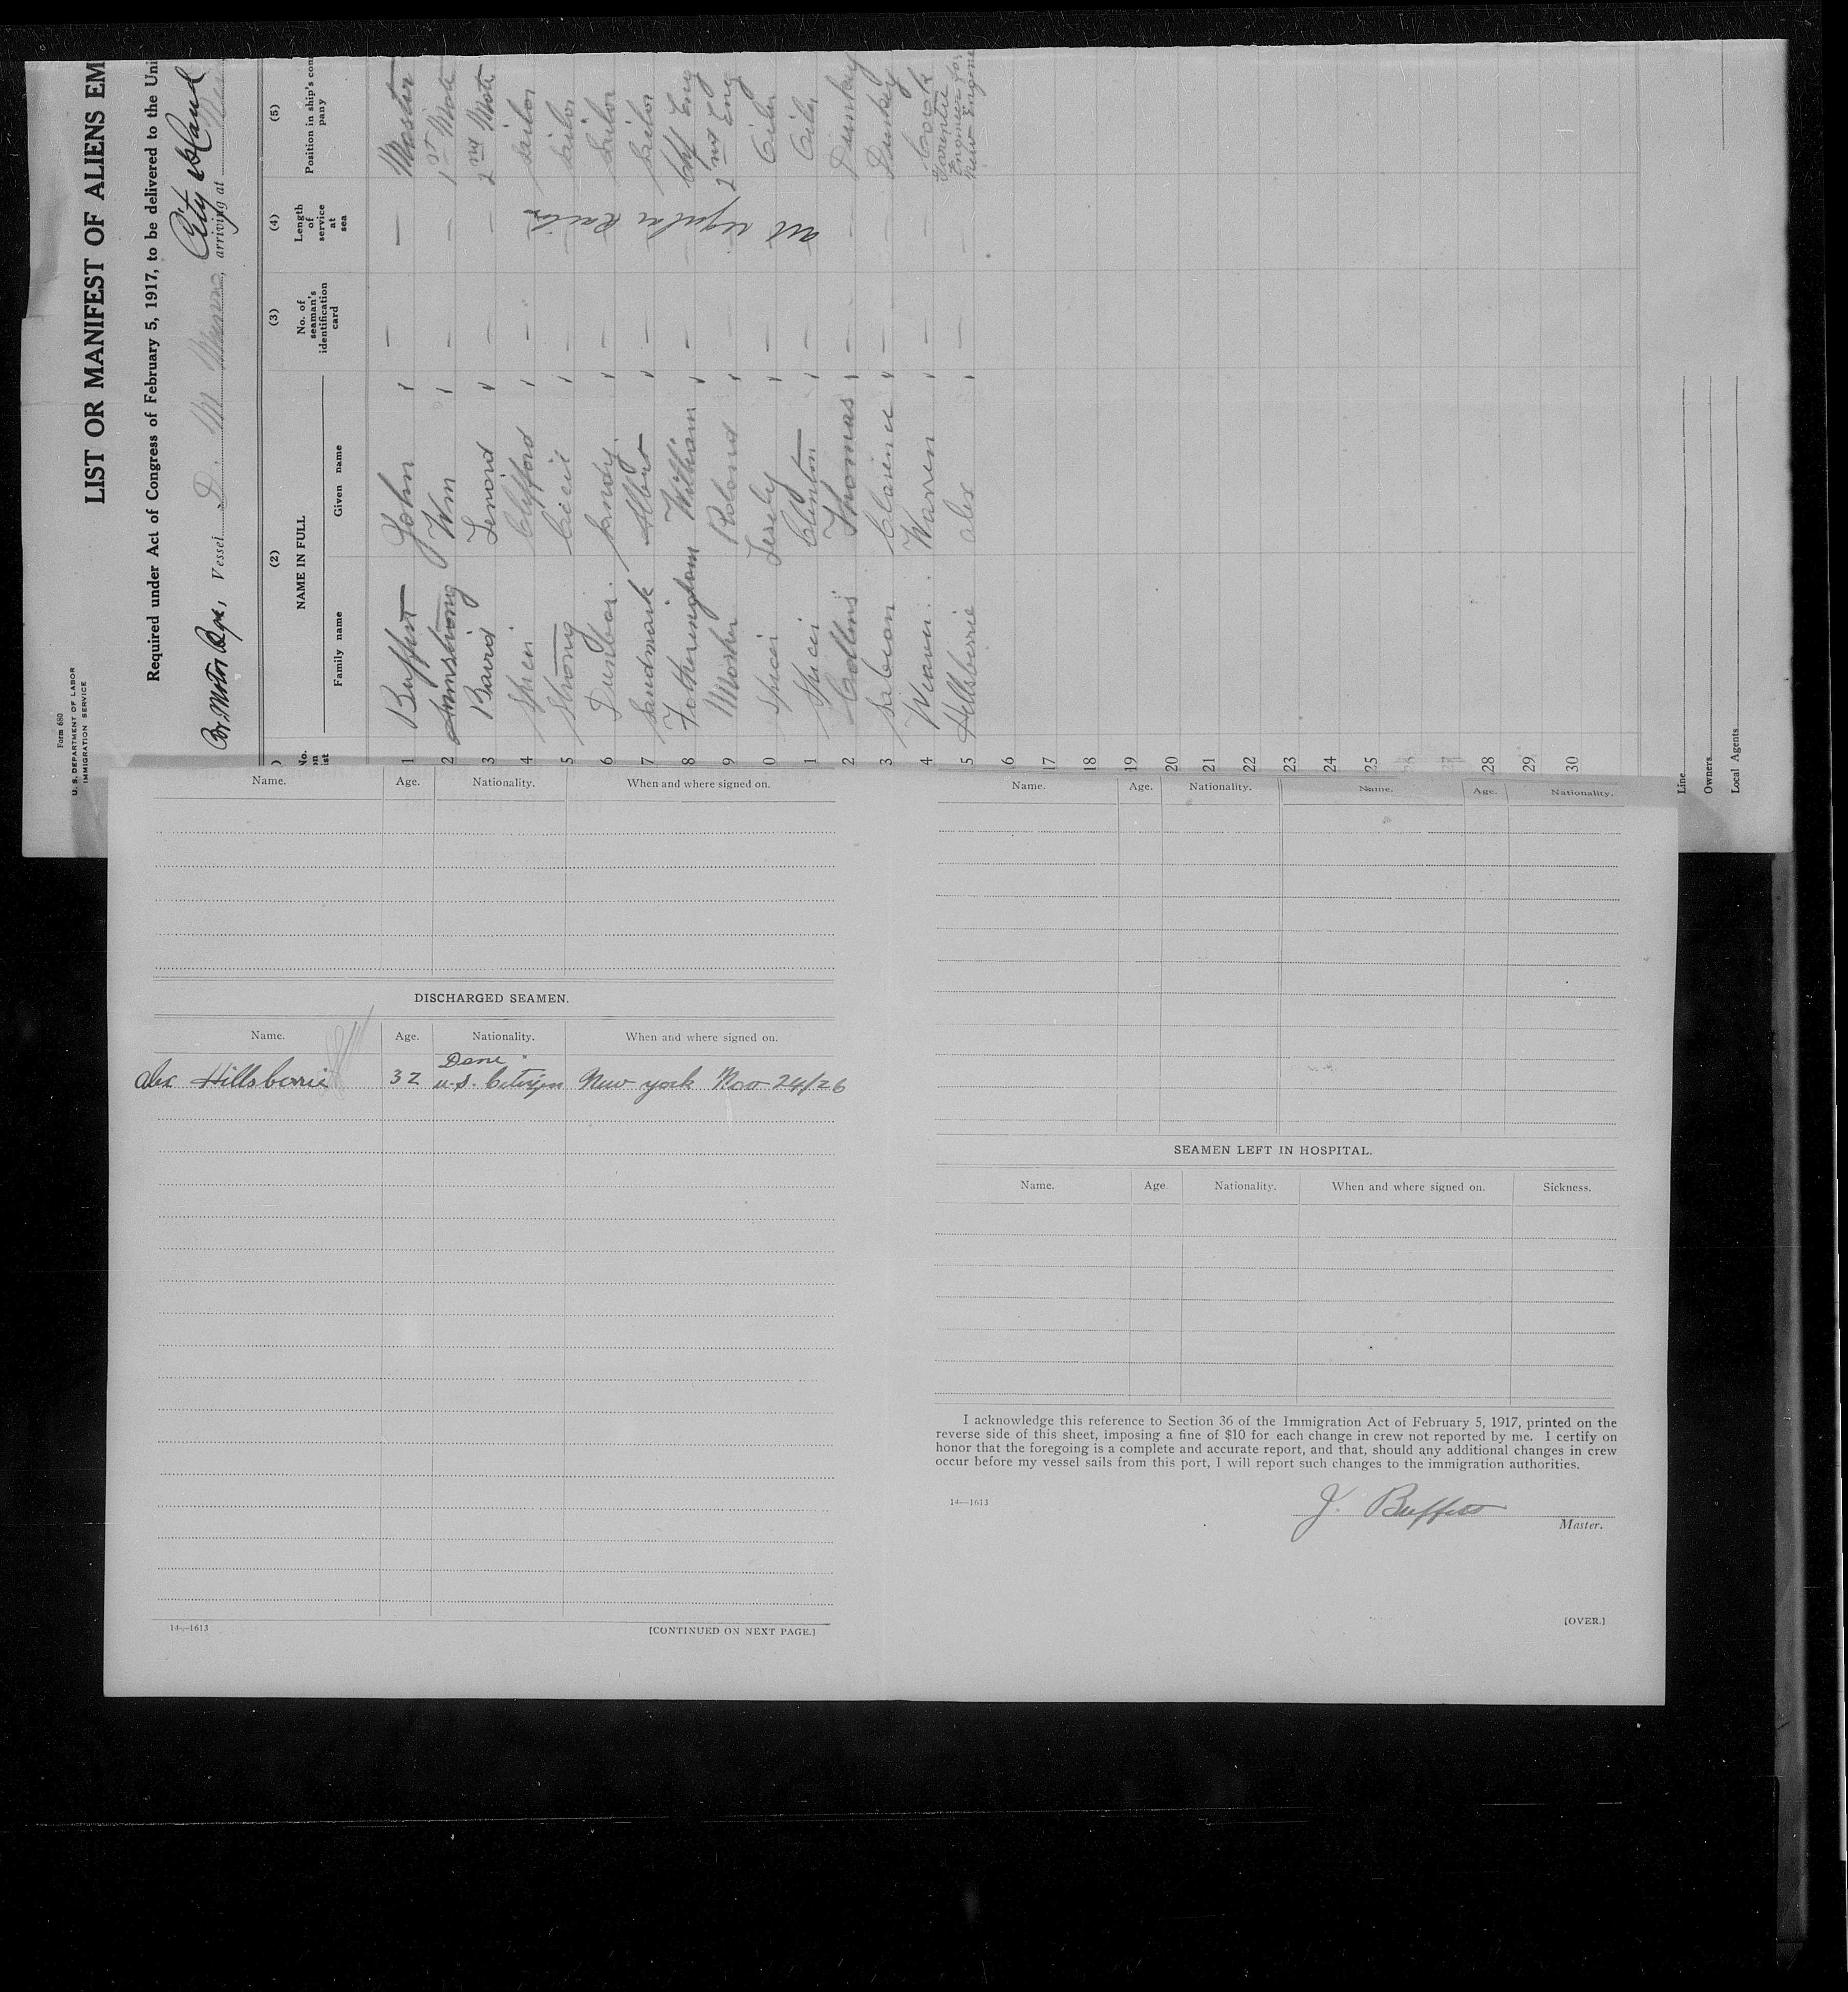 Form 680
U. S. DEPARTMENT OF LABOR
IMMIGRATION SERVICE
LIST OR MANIFEST OF ALIENS EM
Required under Act of Congress of February 5, 1917, to be delivered to the Uni
Br. Motor Vessel D. M. Munro, arriving at City Island
(2) (3) (4) (5)
No. on list
NAME IN FULL
Family name Given name
No. of seaman's identification card
Length of service at sea
Position in ship's company
1 Buffett John — — Master
2 Armstrong Wm — — 1st Mate
3 Bavid Lenord — — 2nd Mate
4 Spicer Clifford — — Sailor
5 Strong Cicil — — Sailor
6 Dunbar Sandy — — Sailor
7 Sandmark Albert — — Sailor
8 Fotheringham William — — Chf Eng
9 Mosher Roland — — 2nd Eng
0 Spicer Lesely — — Oiler
1 Spicer Clinton — — Oiler
2 Collins Thomas — — Dunkey
3 Sabean Clarence — — Dunkey
4 Weaver Warren — — Cook
5 Hillsberrie Alex — — Garentie Engineer for New Engine
all regular sailors
6
17
18
19
20
21
22
23
24
25
26
27
28
29
30
Line
Owners
Local Agents
Name. Age. Nationality. When and where signed on.
DISCHARGED SEAMEN.
Name. Age. Nationality. When and where signed on.
Dane
Alex Hillsberrie 32 U.S. Citizen New York Nov 24/26
14—1613
[CONTINUED ON NEXT PAGE.]
Name. Age. Nationality. Name. Age. Nationality.
SEAMEN LEFT IN HOSPITAL.
Name. Age. Nationality. When and where signed on. Sickness.
I acknowledge this reference to Section 36 of the Immigration Act of February 5, 1917, printed on the
reverse side of this sheet, imposing a fine of $10 for each change in crew not reported by me. I certify on
honor that the foregoing is a complete and accurate report, and that, should any additional changes in crew
occur before my vessel sails from this port, I will report such changes to the immigration authorities.
14—1613
J. Buffett
Master.
[OVER.]